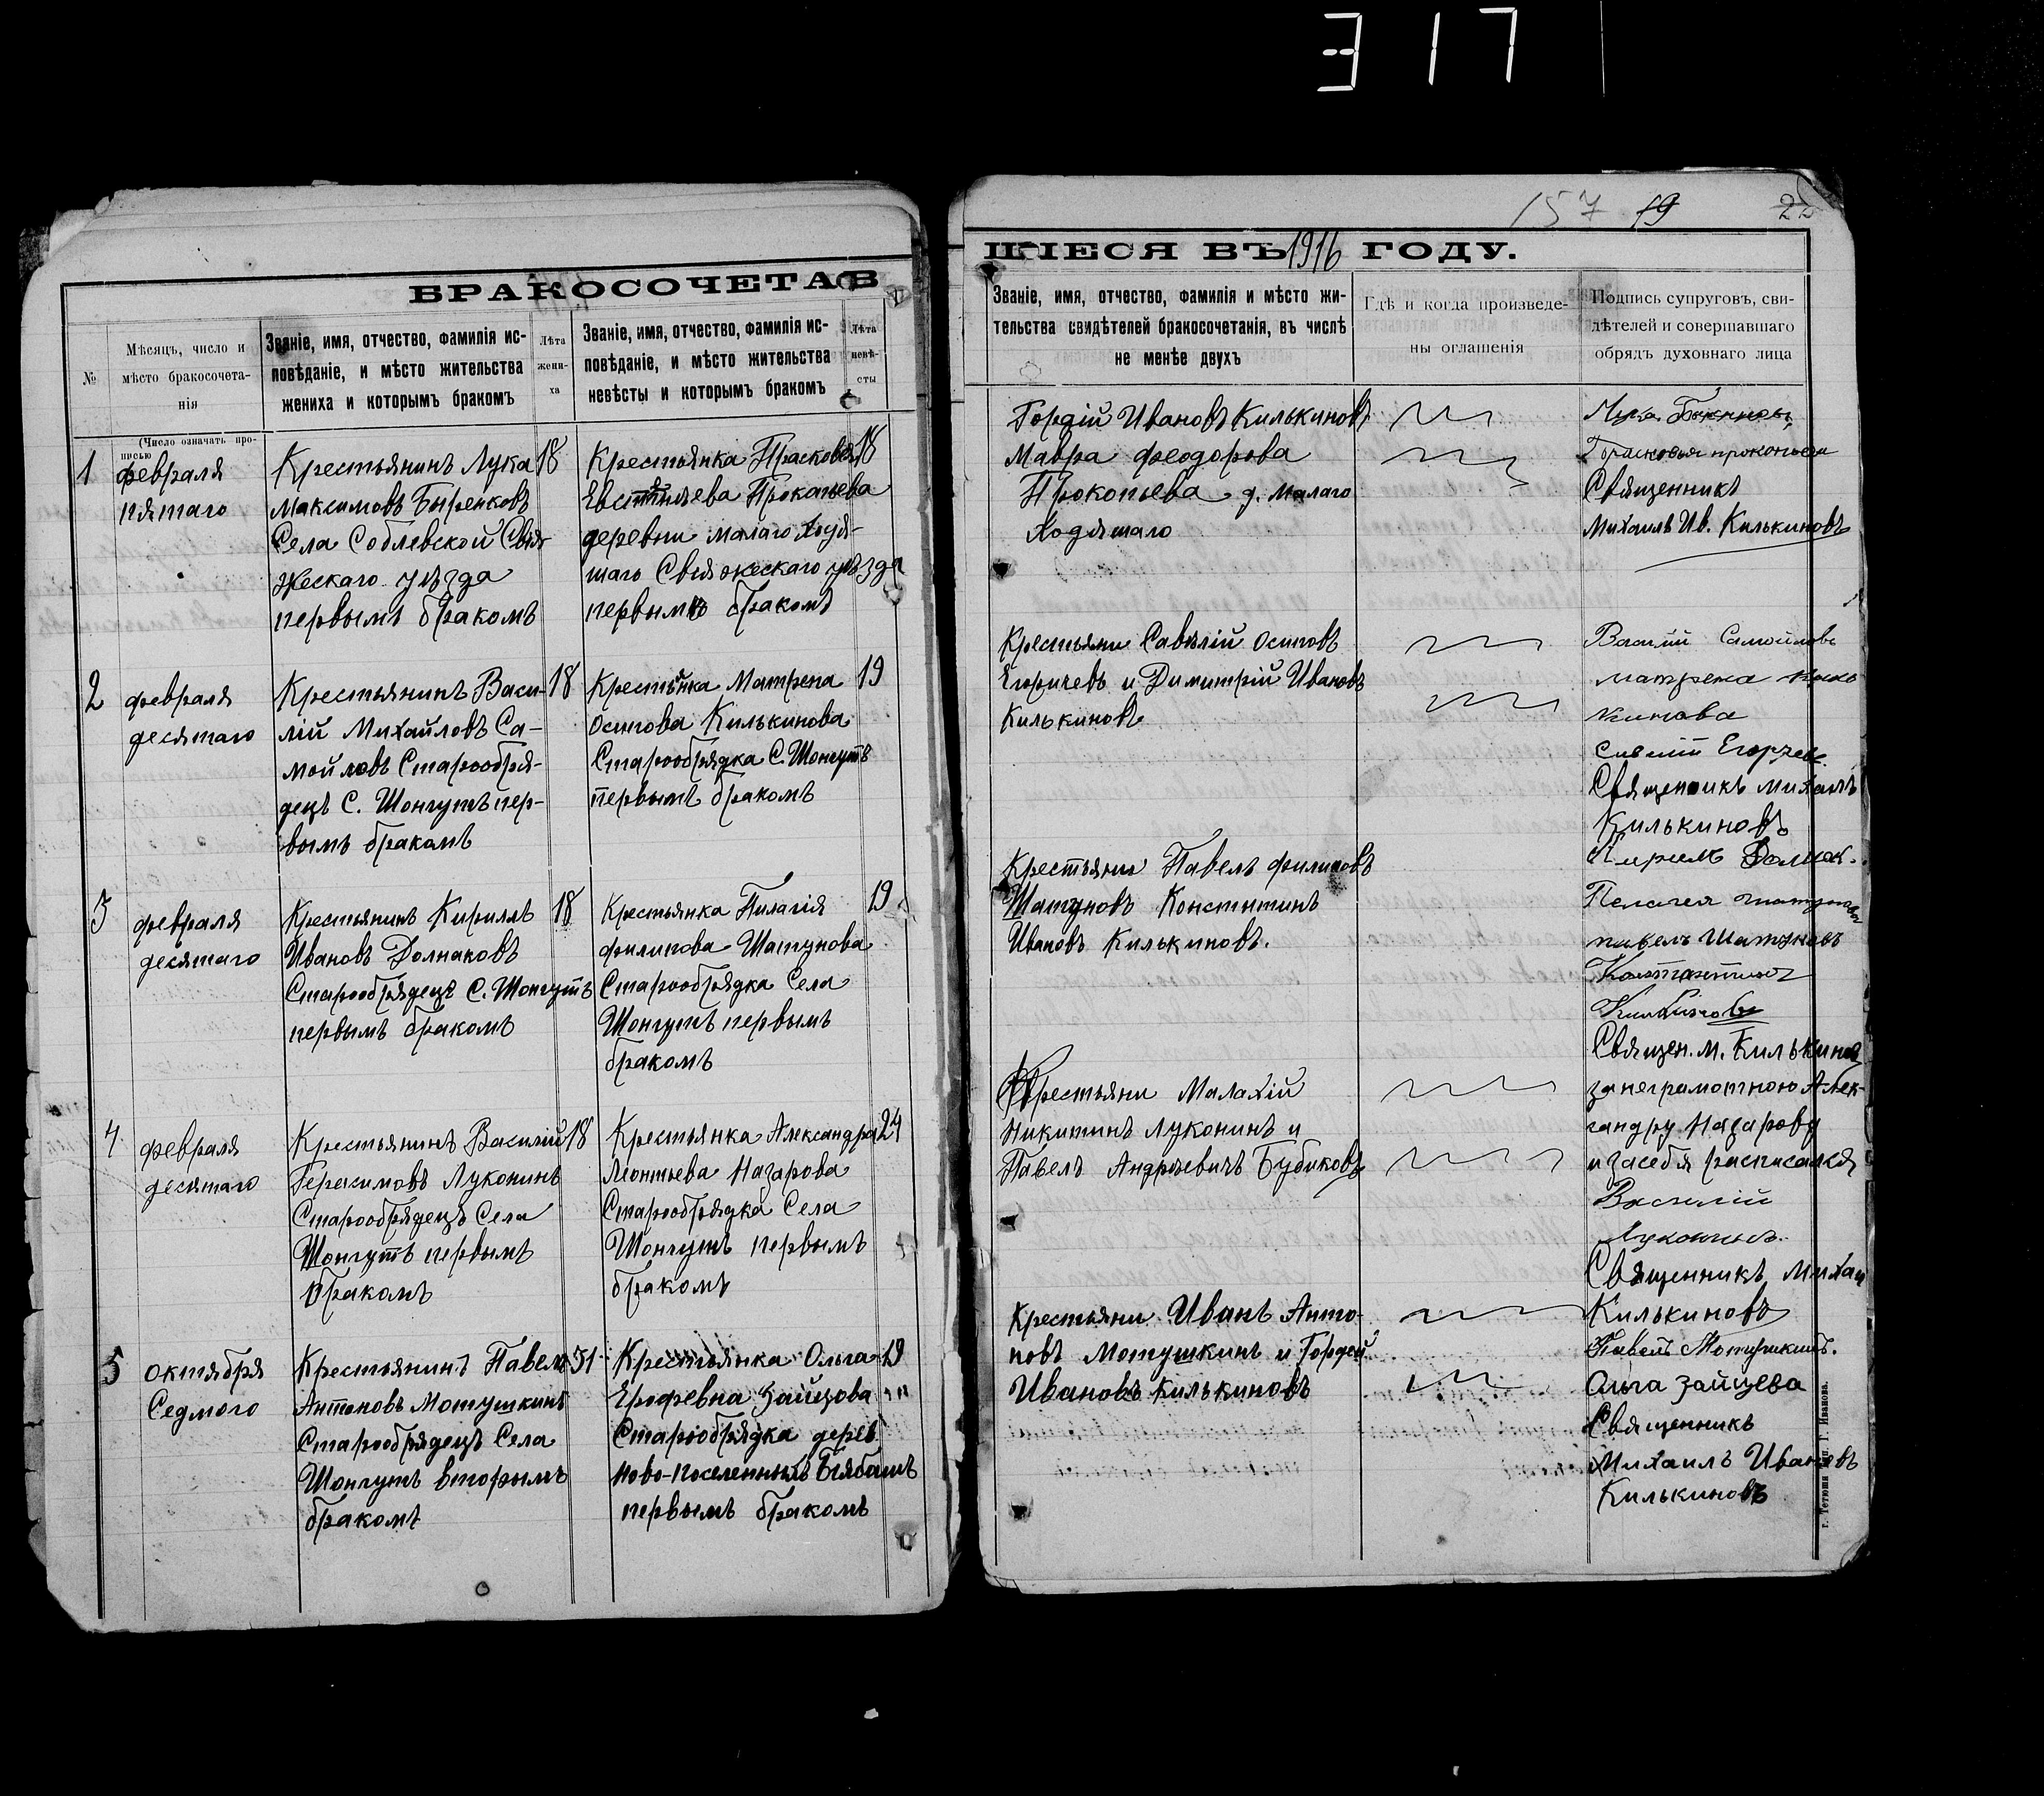 317
БРАКОСОЧЕТАВ
№
Мѣсяцъ, число и
мѣсто бракосочета-
нія
(Число означать про-
писью
Званіе, имя, отчество, фамилія ис-
повѣданіе, и мѣсто жительства
жениха и которымъ бракомъ
Лѣта
жени-
ха
Званіе, имя, отчество, фамилія ис-
повѣданіе, и мѣсто жительства
невѣсты и которымъ бракомъ
Лѣта
невѣ-
сты
1
февраля
пятаго
Крестьянинъ Лука
Максимовъ
Села Соблевской Свія-
жескаго уѣзда
первымъ бракомъ
18
Крестьянка Прасковья
Прокопьева
деревни малаго Ходя-
шаго Свіяжескаго уѣзда
первымъ бракомъ
18
2
февраля
десятаго
Крестьянинъ Васи-
лій Михайловъ Са-
мойловъ Старообря-
децъ С. Шонгутъ пер-
вымъ бракомъ
18
Крестьянка Матрена
Осипова Килькинова
Старообрядка С. Шонгутъ
первымъ бракомъ
19
3
февраля
десятаго
Крестьянинъ Кириллъ
Ивановъ Долнаковъ
Старообрядецъ С. Шонгутъ
первымъ бракомъ
18
Крестьянка Пилагія
филипова Шатунова
Старообрядка Села
Шонгутъ первымъ
бракомъ
19
4
февраля
десятаго
Крестьянинъ Василій
Герасимовъ Луконинъ
Старообрядецъ Села
Шонгутъ первымъ
бракомъ
18
Крестьянка Александра
Леонтьева Назарова
Старообрядка Села
Шонгутъ первымъ
бракомъ
24
5
октября
Седмого
Крестьянинъ Павелъ
Антоновъ Мотушкинъ
Старообрядецъ Села
Шонгутъ вторымъ
бракомъ
Крестьянка Ольга
Ерофевна Зайцова
Старообрядка дерев
Ново-поселенныхъ Бябашъ
первымъ бракомъ
19
157 19 22
ШІЕСЯ ВЪ 1916 ГОДУ.
Званіе, имя, отчество, фамилія и мѣсто жи-
тельства свидѣтелей бракосочетанія, въ числѣ
не менѣе двухъ
Гдѣ и когда произведе-
ны оглашенія
Подпись супруговъ, сви-
дѣтелей и совершавшаго
обрядъ духовнаго лица
Гордій Ивановъ Килькиновъ
Мавра феодорова
Прокопьева д. Малаго
Ходяшаго
Лука
прокопьева
Священникъ
Михаилъ Ив. Килькиновъ
Крестьяни Савелій Осиповъ
Егоричевъ и Димитрій Ивановъ
Килькиновъ
Василій Самойловъ
матрена
кинова
Священникъ Михаилъ
Килькиновъ
Крестьяни Павелъ филиповъ
Шатуновъ Констнтинъ
Ивановъ Килькиновъ.
Пелагея
павелъ Шатуновъ
Константинъ
Священ. м. Килькинов
Крестьяни Малахій
Никитинъ Луконинъ и
Павелъ Андреевичъ Бубиковъ
за неграмотною Алек-
сандру Назарову
и засебя расписался
Василій
Луконинъ.
Священникъ Михаи
Килькиновъ
Крестьяни Иванъ Анто-
новъ Мотушкинъ и Гордей
Ивановъ Килькиновъ
Павелъ Мотушкинъ.
Ольга Зайцева
Священникъ
Михаилъ Ивановъ
Килькиновъ
г. Тетюши Тип. Г. Иванова.